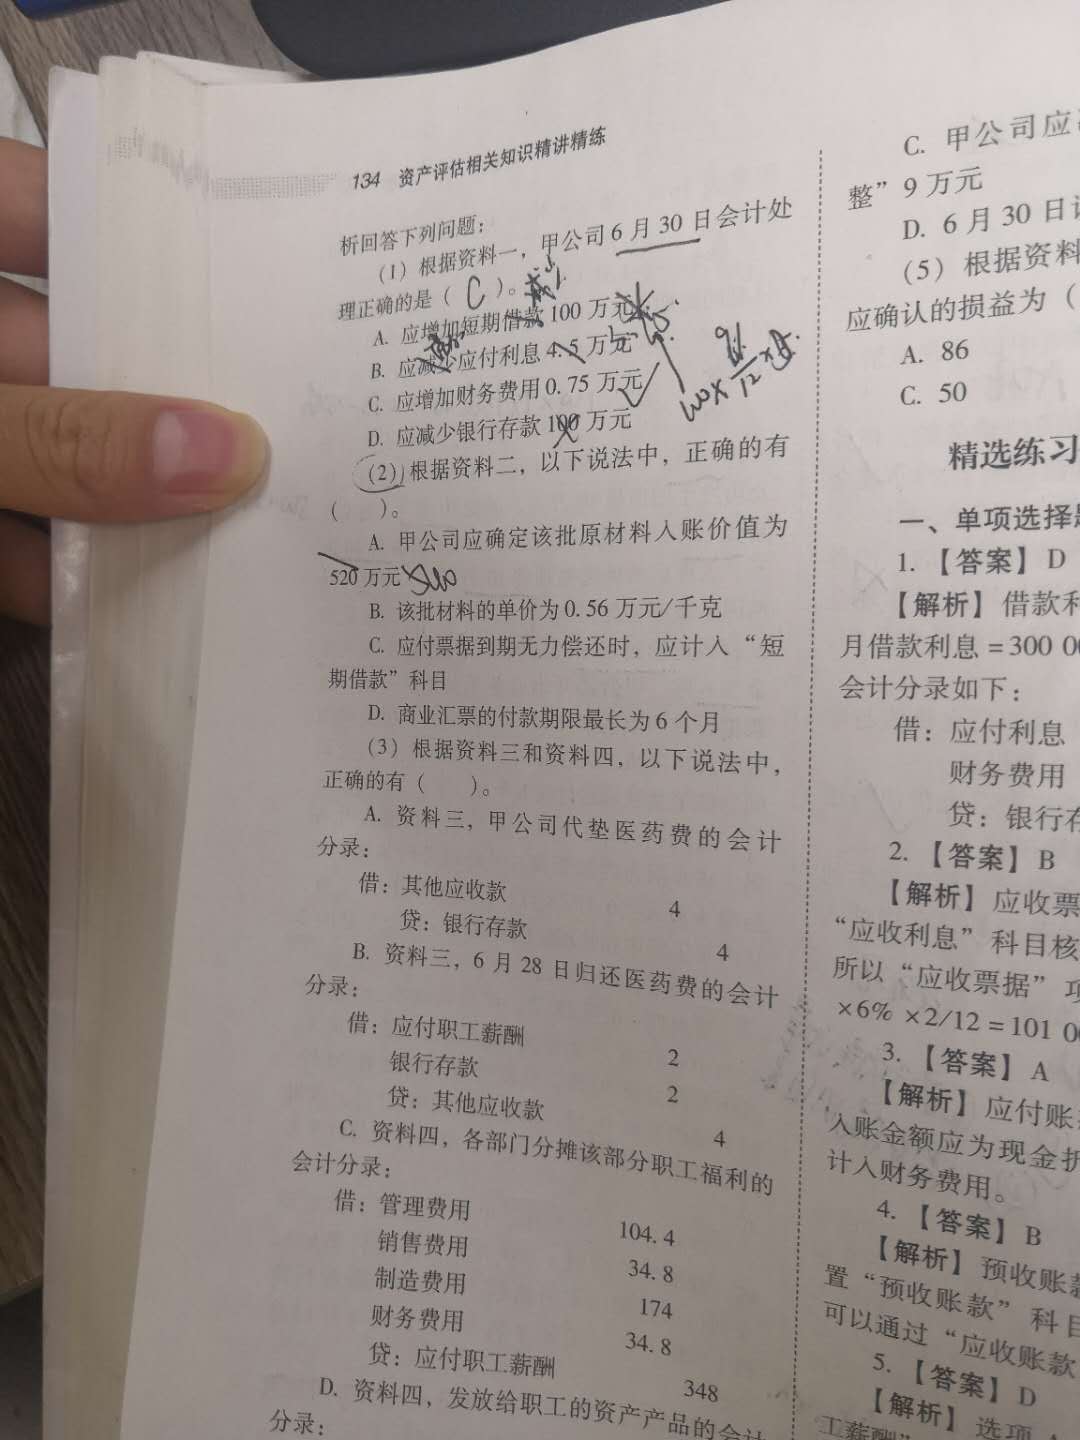 134 资产评估相关知识精讲精练
析回答下列问题：
（1）根据资料一，甲公司6月30日会计处
理正确的是（ C ）。
A. 应增加短期借款100万元
B. 应减少应付利息4.5万元
C. 应增加财务费用0.75万元
D. 应减少银行存款100万元
（2）根据资料二，以下说法中，正确的有
（　　）。
A. 甲公司应确定该批原材料入账价值为
520万元
B. 该批材料的单价为0.56万元/千克
C. 应付票据到期无力偿还时，应计入“短
期借款”科目
D. 商业汇票的付款期限最长为6个月
（3）根据资料三和资料四，以下说法中，
正确的有（　　）。
A. 资料三，甲公司代垫医药费的会计
分录：
借：其他应收款 4
贷：银行存款 4
B. 资料三，6月28日归还医药费的会计
分录：
借：应付职工薪酬 2
银行存款 2
贷：其他应收款 4
C. 资料四，各部门分摊该部分职工福利的
会计分录：
借：管理费用 104.4
销售费用 34.8
制造费用 174
财务费用 34.8
贷：应付职工薪酬 348
D. 资料四，发放给职工的资产产品的会计
分录：
C. 甲公司应
整”9万元
D. 6月30日
（5）根据资料
应确认的损益为（
A. 86
C. 50
精选练习
一、单项选择题
1.【答案】D
【解析】借款利
月借款利息=300 00
会计分录如下：
借：应付利息
财务费用
贷：银行存
2.【答案】B
【解析】应收票
“应收利息”科目核
所以“应收票据”项
×6%×2/12=101 00
3.【答案】A
【解析】应付账
入账金额应为现金折
计入财务费用。
4.【答案】B
【解析】预收账款
置“预收账款”科目
可以通过“应收账款
5.【答案】D
【解析】选项
工薪酬”